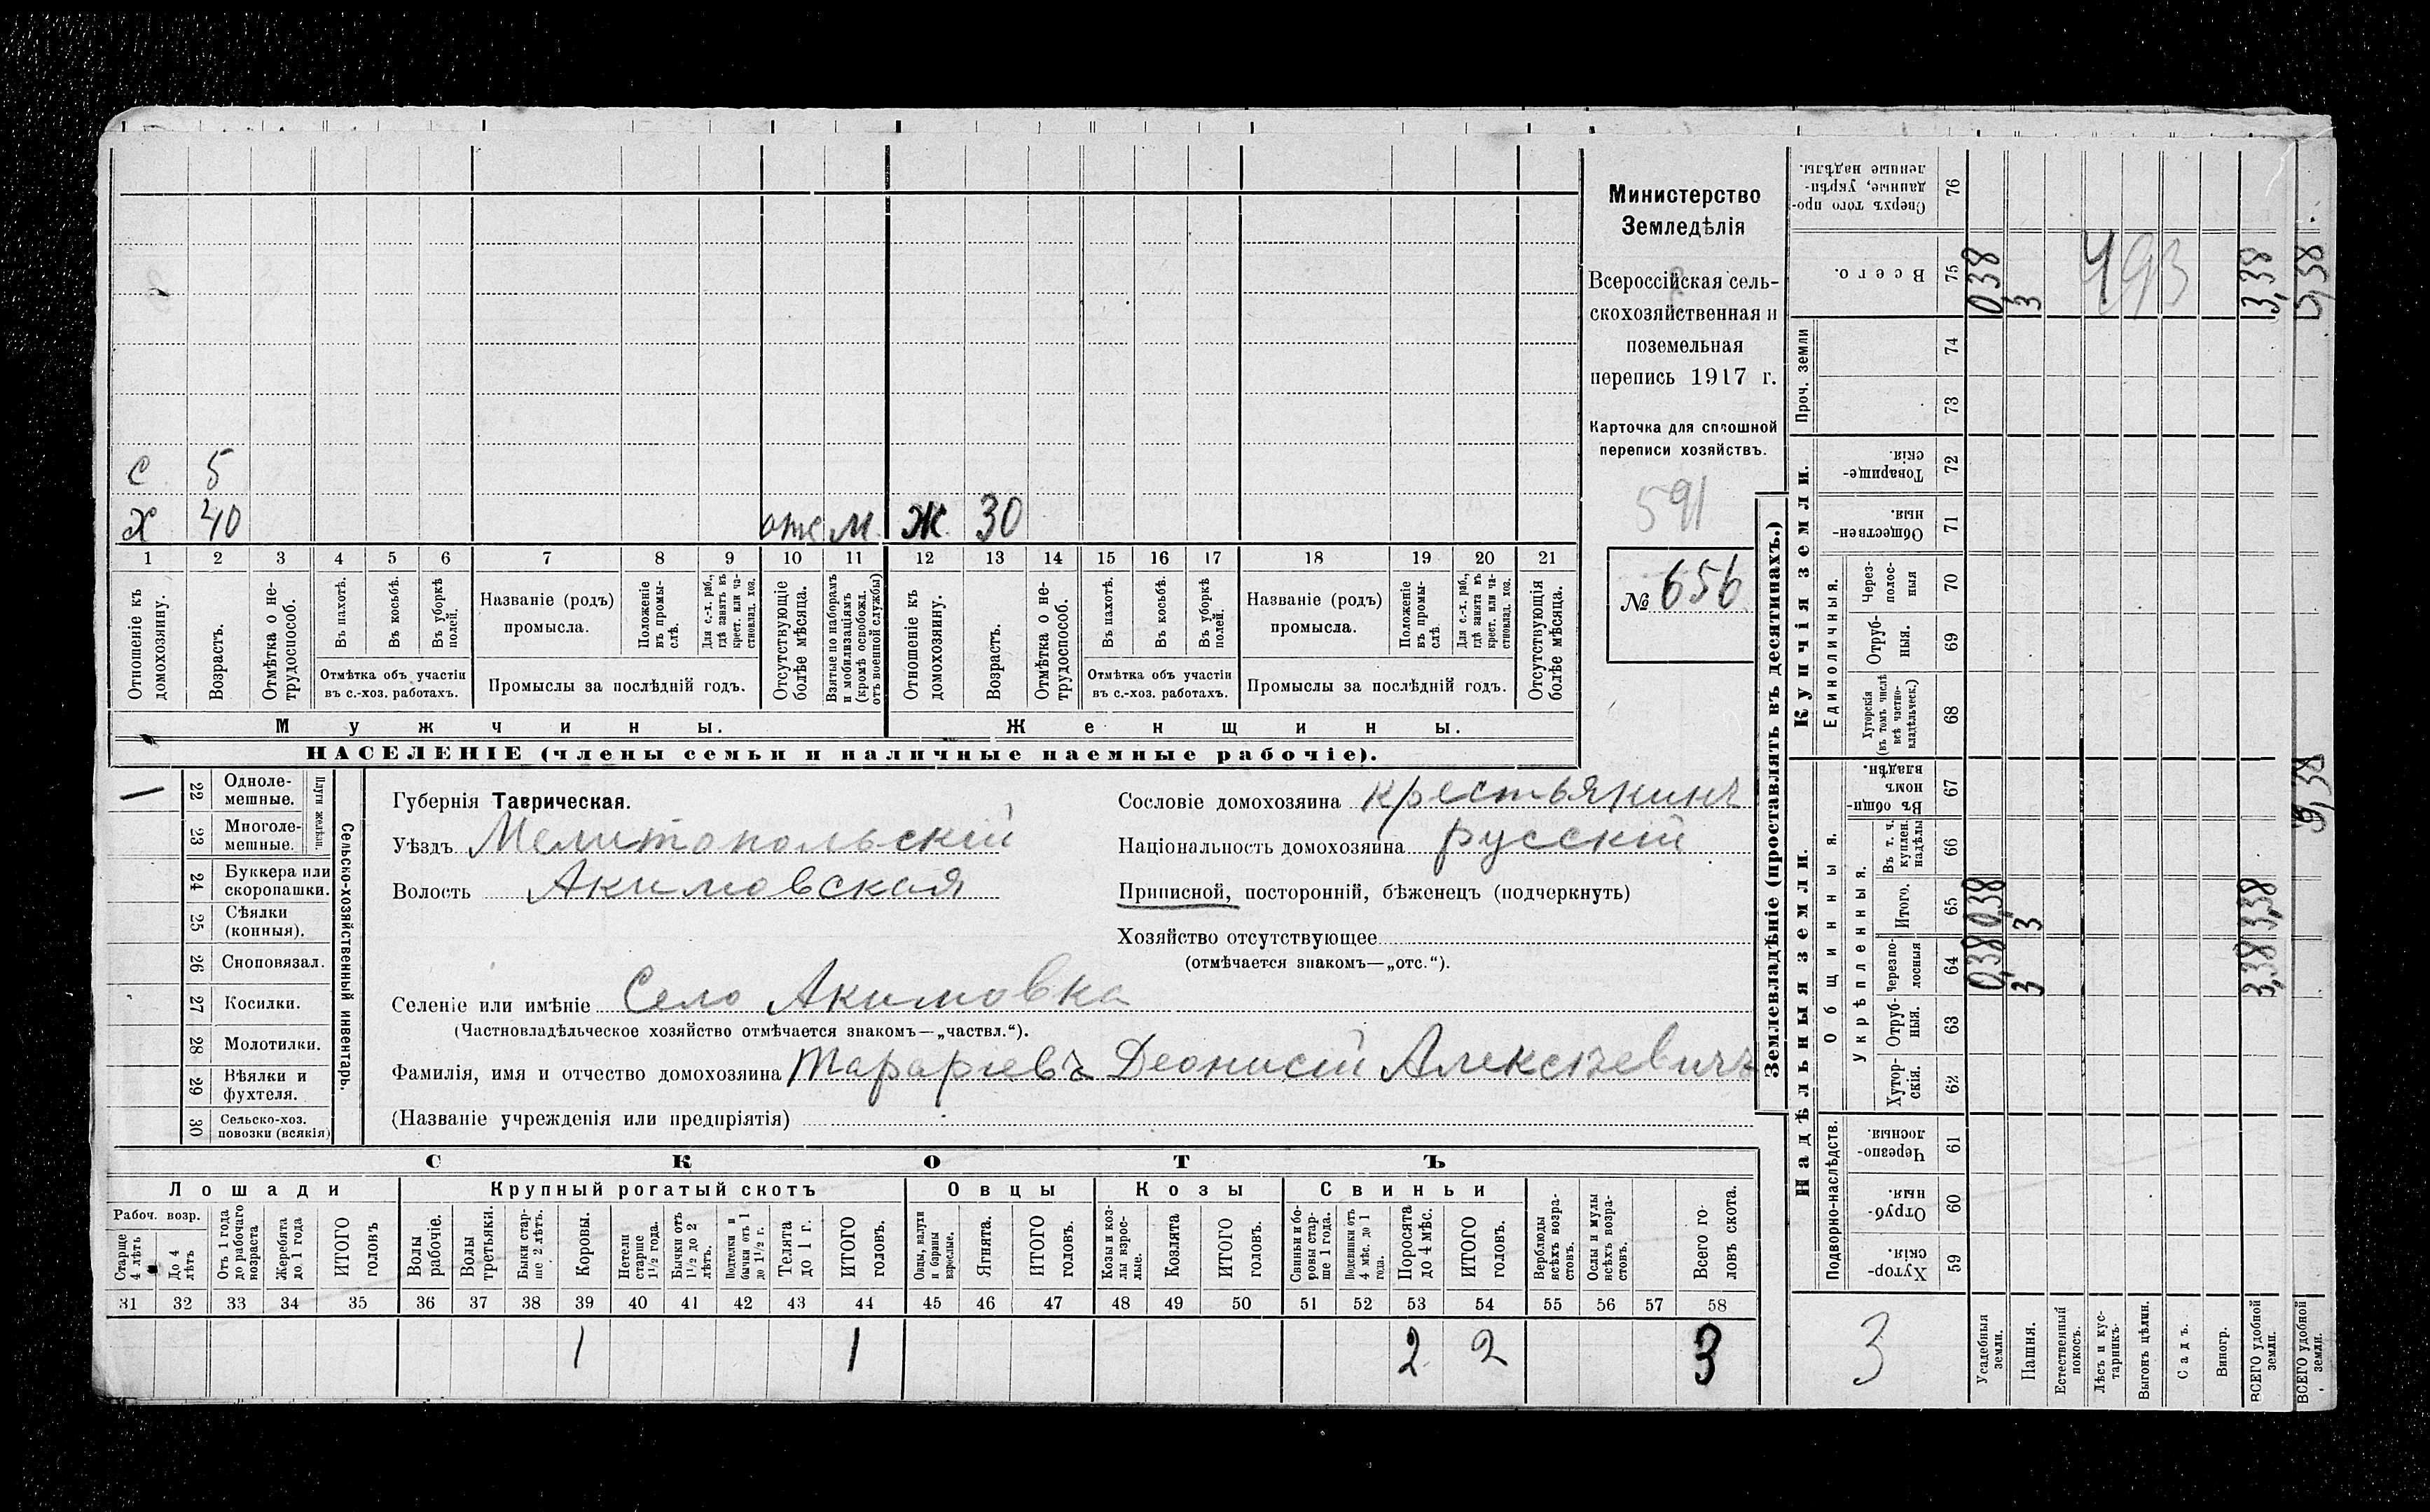 С 5
Х 40 отс М. Ж. 30
1 2 3 4 5 6 7 8 9 10 11 12 13 14 15 16 17 18 19 20 21
Отношеніе къ домохозяину.
Возрастъ.
Отмѣтка о не-
трудоспособ.
Въ пахотѣ.
Въ косьбѣ.
Въ уборкѣ
полей.
Отмѣтка объ участіи
въ с.-хоз. работахъ.
Названіе (родъ)
промысла.
Положеніе
въ промы-
слѣ.
Для с.-х. раб.,
гдѣ занятъ въ
крест. или ча-
стновлад. хоз.
Промыслы за послѣдній годъ.
Отсутствующіе
болѣе мѣсяца.
Взятые по наборамъ
и мобилизаціямъ
(кромѣ освобожл.
отъ военной службы)
Отношеніе къ
домохозяину.
Возрастъ.
Отмѣтка о не-
трудоспособ.
Въ пахотѣ.
Въ косьбѣ.
Въ уборкѣ
полей.
Отмѣтка объ участіи
въ с.-хоз. работахъ.
Названіе (родъ)
промысла.
Положеніе
въ промы-
слѣ.
Для с.-х. раб.,
гдѣ занята въ
крест. или ча-
стновлад. хоз.
Промыслы за послѣдній годъ.
Отсутствующія
болѣе мѣсяца.
Мужчины.
Женщины.
НАСЕЛЕНІЕ (члены семьи и наличные наемные рабочіе).
Министерство
Земледѣлія
Всероссійская сель-
скохозяйственная и
поземельная
перепись 1917 г.
Карточка для сплошной
переписи хозяйствъ.
591
№ 656
22 Одноле-
мешные.
23 Многоле-
мешные.
Плуги желѣзн.
24 Буккера или
скоропашки.
25 Сѣялки
(конныя).
26 Сноповязал.
27 Косилки.
28 Молотилки.
29 Вѣялки и
фухтеля.
30 Сельско-хоз.
повозки (всякія)
Сельско-хозяйственный инвентарь.
Губернія Таврическая.
Уѣздъ Мелитопольскій
Волость Акимовская
Сословіе домохозяина крестьянинъ
Національность домохозяина русскій
Приписной, посторонній, бѣженецъ (подчеркнуть)
Хозяйство отсутствующее
(отмѣчается знакомъ—„отс.“).
Селеніе или имѣніе Село Акимовка
(Частновладѣльческое хозяйство отмѣчается знакомъ—„частвл.“).
Фамилія, имя и отчество домохозяина Тараріевъ Деонисій Алексѣевичъ
(Названіе учрежденія или предпріятія)
СКОТЪ
Лошади
Крупный рогатый скотъ
Овцы
Козы
Свиньи
Рабоч. возр.
Старше
4 лѣтъ
До 4
лѣтъ
Отъ 1 года
до рабочаго
возраста
Жеребята
до 1 года
ИТОГО
головъ
Волы
рабочіе.
Волы
третьяки.
Быки стар-
ше 2 лѣтъ.
Коровы.
Нетели
старше
1½ года.
Бычки отъ
1½ до 2
лѣтъ.
Подтелки и
бычки отъ 1
до 1½ г.
Телята
до 1 г.
ИТОГО
головъ.
Овцы, валухи
и бараны
взрослые.
Ягнята.
ИТОГО
головъ.
Козы и коз-
лы взрос-
лые.
Козлята
ИТОГО
головъ.
Свиньи и бо-
ровы стар-
ше 1 года.
Подсвинки отъ
4 мѣс. до 1
года.
Поросята
до 4 мѣс.
ИТОГО
головъ.
Верблюды
всѣхъ возра-
стовъ.
Ослы и мулы
всѣхъ возра-
стовъ.
Всего го-
ловъ скота.
31 32 33 34 35 36 37 38 39 40 41 42 43 44 45 46 47 48 49 50 51 52 53 54 55 56 57 58
1 1 2 2 3
Землевладѣніе (проставлять въ десятинахъ.)
Надѣльныя земли.
Купчія земли.
Проч. земли
Подворно-наслѣдств.
Общинныя.
Укрѣпленныя.
Единоличныя.
Сверхъ того про-
данные, укрѣп-
ленные надѣлы.
76
Всего.
75
74
73
Товарище-
скія.
72
Обществен-
ныя.
71
Через-
полос-
ныя
70
Отруб-
ныя.
69
Хуторскія
(въ томъ числѣ
всѣ частно-
владѣльческ.)
68
Въ общи-
номъ
владѣн.
67
Въ т. ч.
куплен.
надѣлы
66
Итого.
65
Черезпо-
лосныя
64
Отруб-
ныя.
63
Хутор-
скія.
62
Черезпо-
лосныя.
61
Отруб-
ныя.
60
Хутор-
скія.
59
3
Усадебныя
земли.
0,38 0,38 038
Пашня.
3 3 3
Естественный
покосъ.
Лѣсъ и кус-
тарникъ.
Выгонъ цѣлин.
Садъ.
Виногр.
493
ВСЕГО удобной
земли.
3,38 3,38 3,38
ВСЕГО удобной
земли.